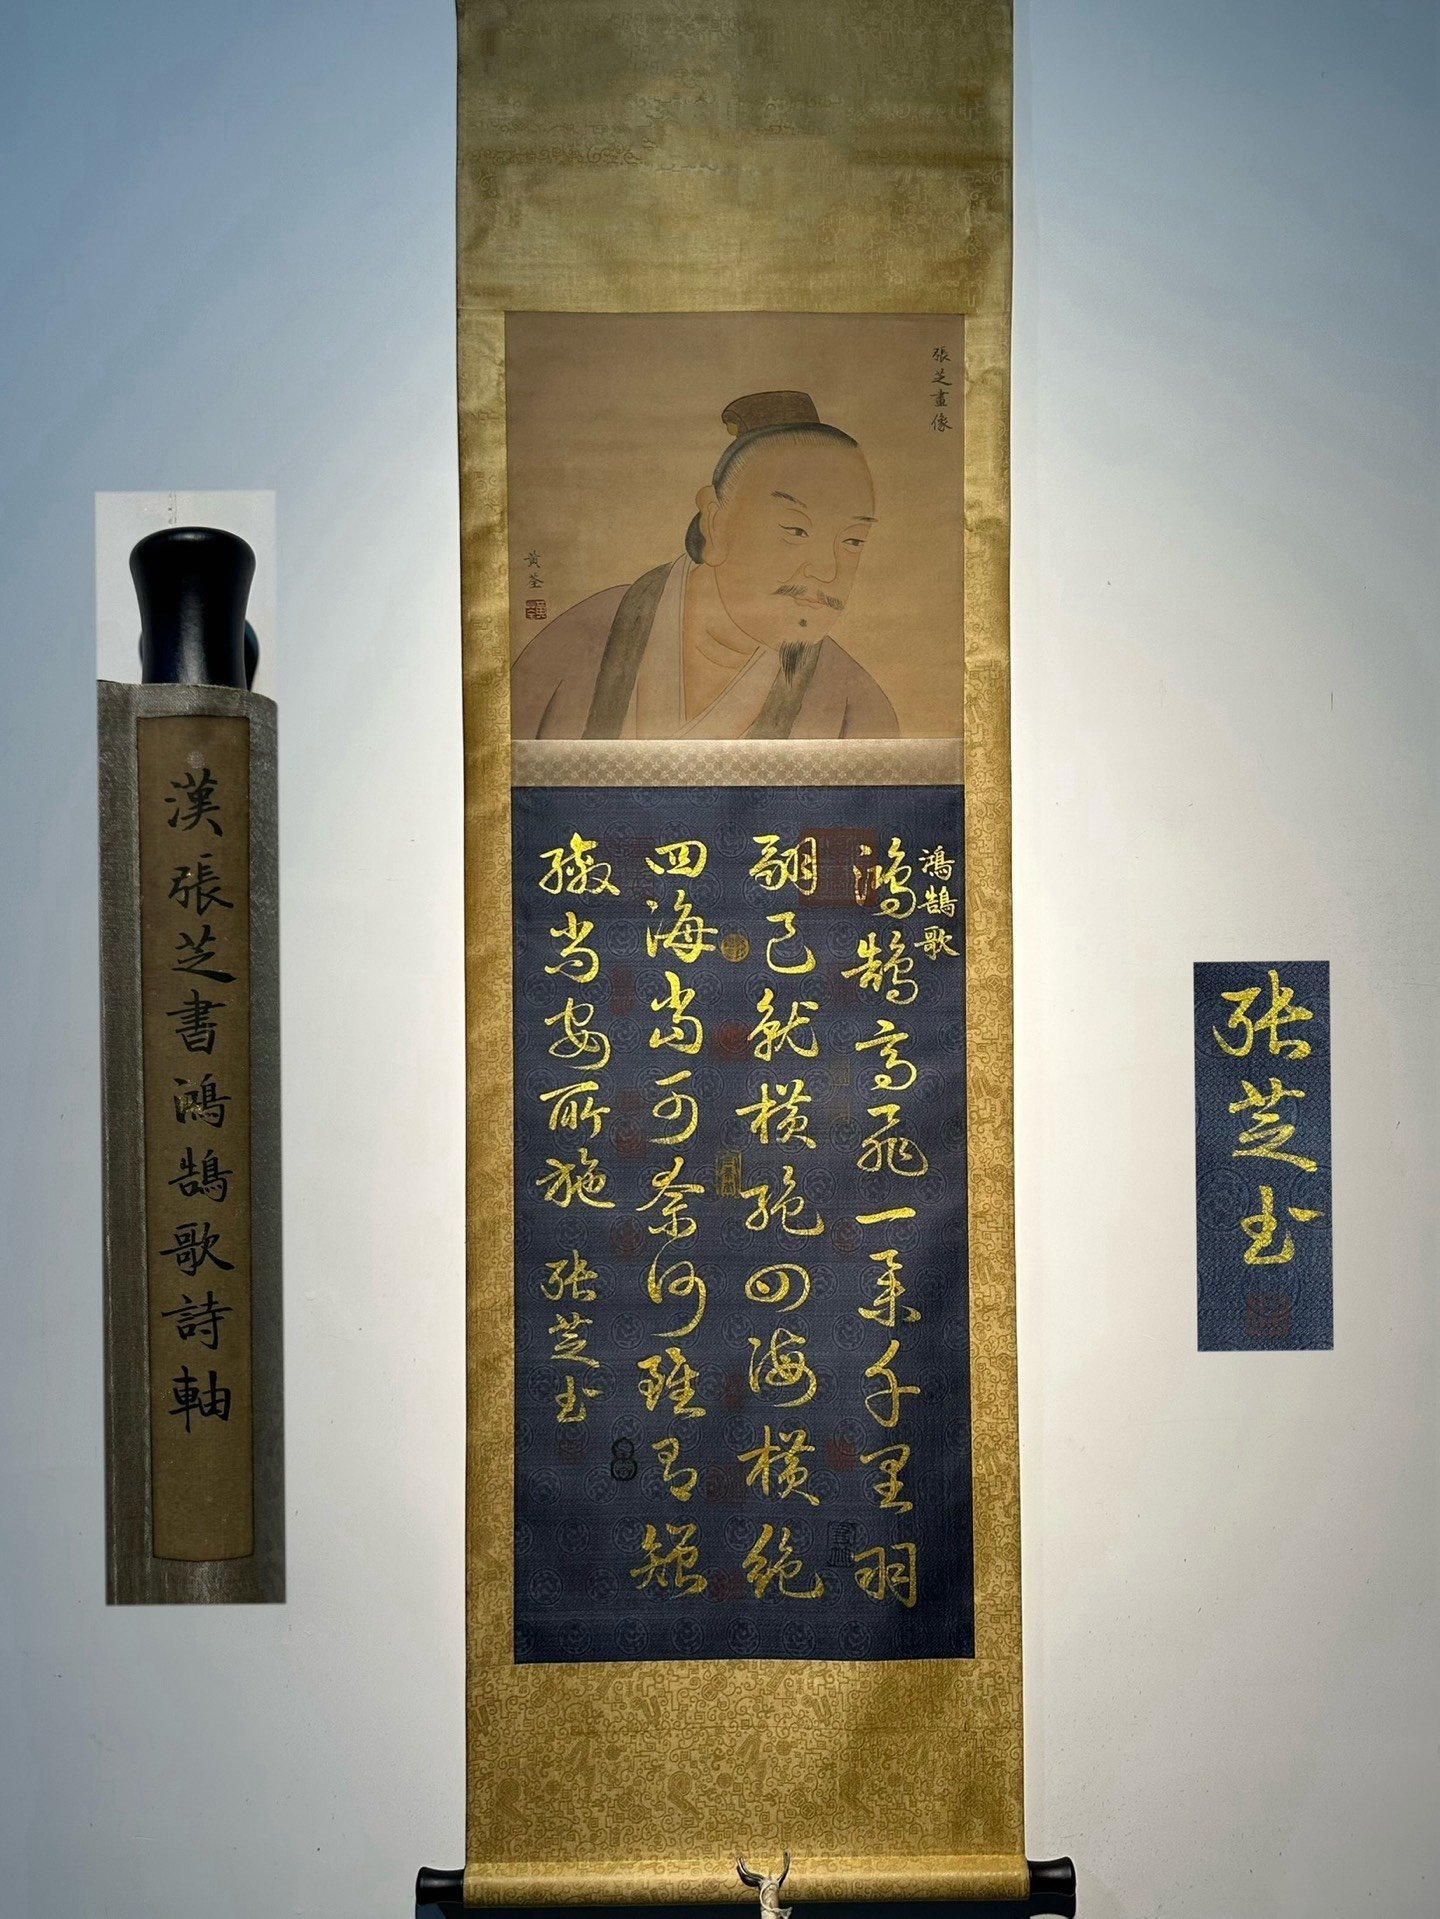 漢張芝書鴻鵠歌詩軸
張芝畫像
黃荃
鴻鵠歌
鴻鵠高飛一舉千里羽
翮已就橫絕四海橫絕
四海當可奈何雖有矰
繳尚安所施
張芝書
張芝書